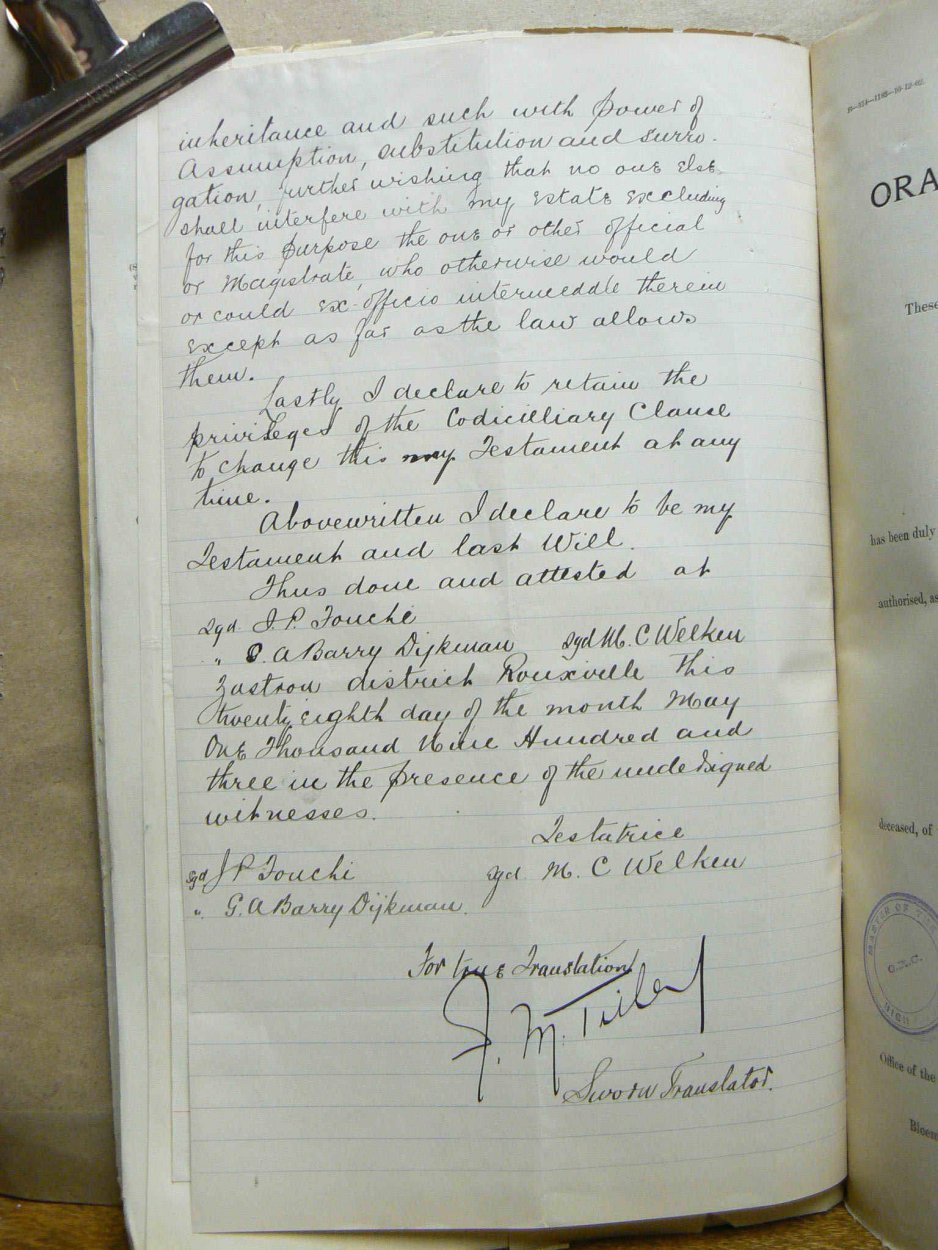 inheritance and such with power of
Assumption, substitution and surro-
gation, further wishing that no one else
shall interfere with my Estate excluding
for this purpose the one or other official
or Magistrate, who otherwise would
or could Ex-officio intermeddle therein
except as far as the law allows
them.
Lastly I declare to retain the
privileges of the Codicilliary Clause
to change this my Testament at any
time.
Abovewritten I declare to be my
Testament and last Will.
Thus done and attested at
sgd. J. P. Fouché
" G. A Barry Dijkman sgd M. C Welken
Zastron district Rouxville this
twenty eighth day of the month May
One Thousand Nine Hundred and
three in the presence of the undersigned
witnesses.
Testatrice
sgd J P Fouché sgd M. C Welken
" G. A Barry Dijkman.
For true Translation
J. M.
Sworn Translator.
B—814—1198—10-12-02.
ORA
These
has been duly
authorised, as
deceased, of
MASTER OF THE
Office of the
Bloem